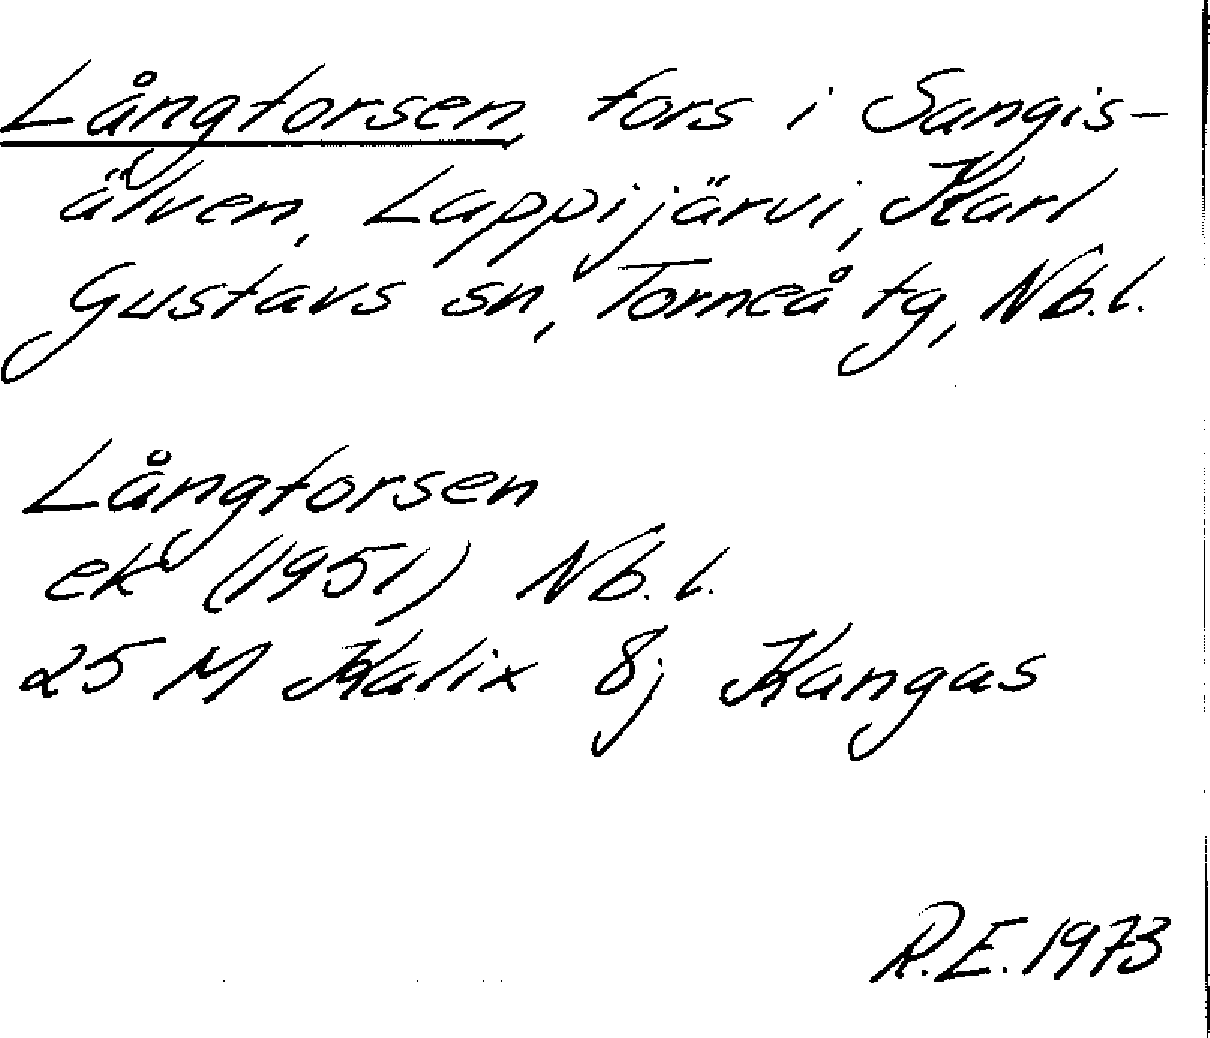 Långforsen, fors i Sangis-
älven, Lappijärvi, Karl
Gustavs sn, Torneå tg, Nb.l.
Långforsen
ek (1951) Nb.l.
25 M Kalix 8j Kangas
R.E. 1973